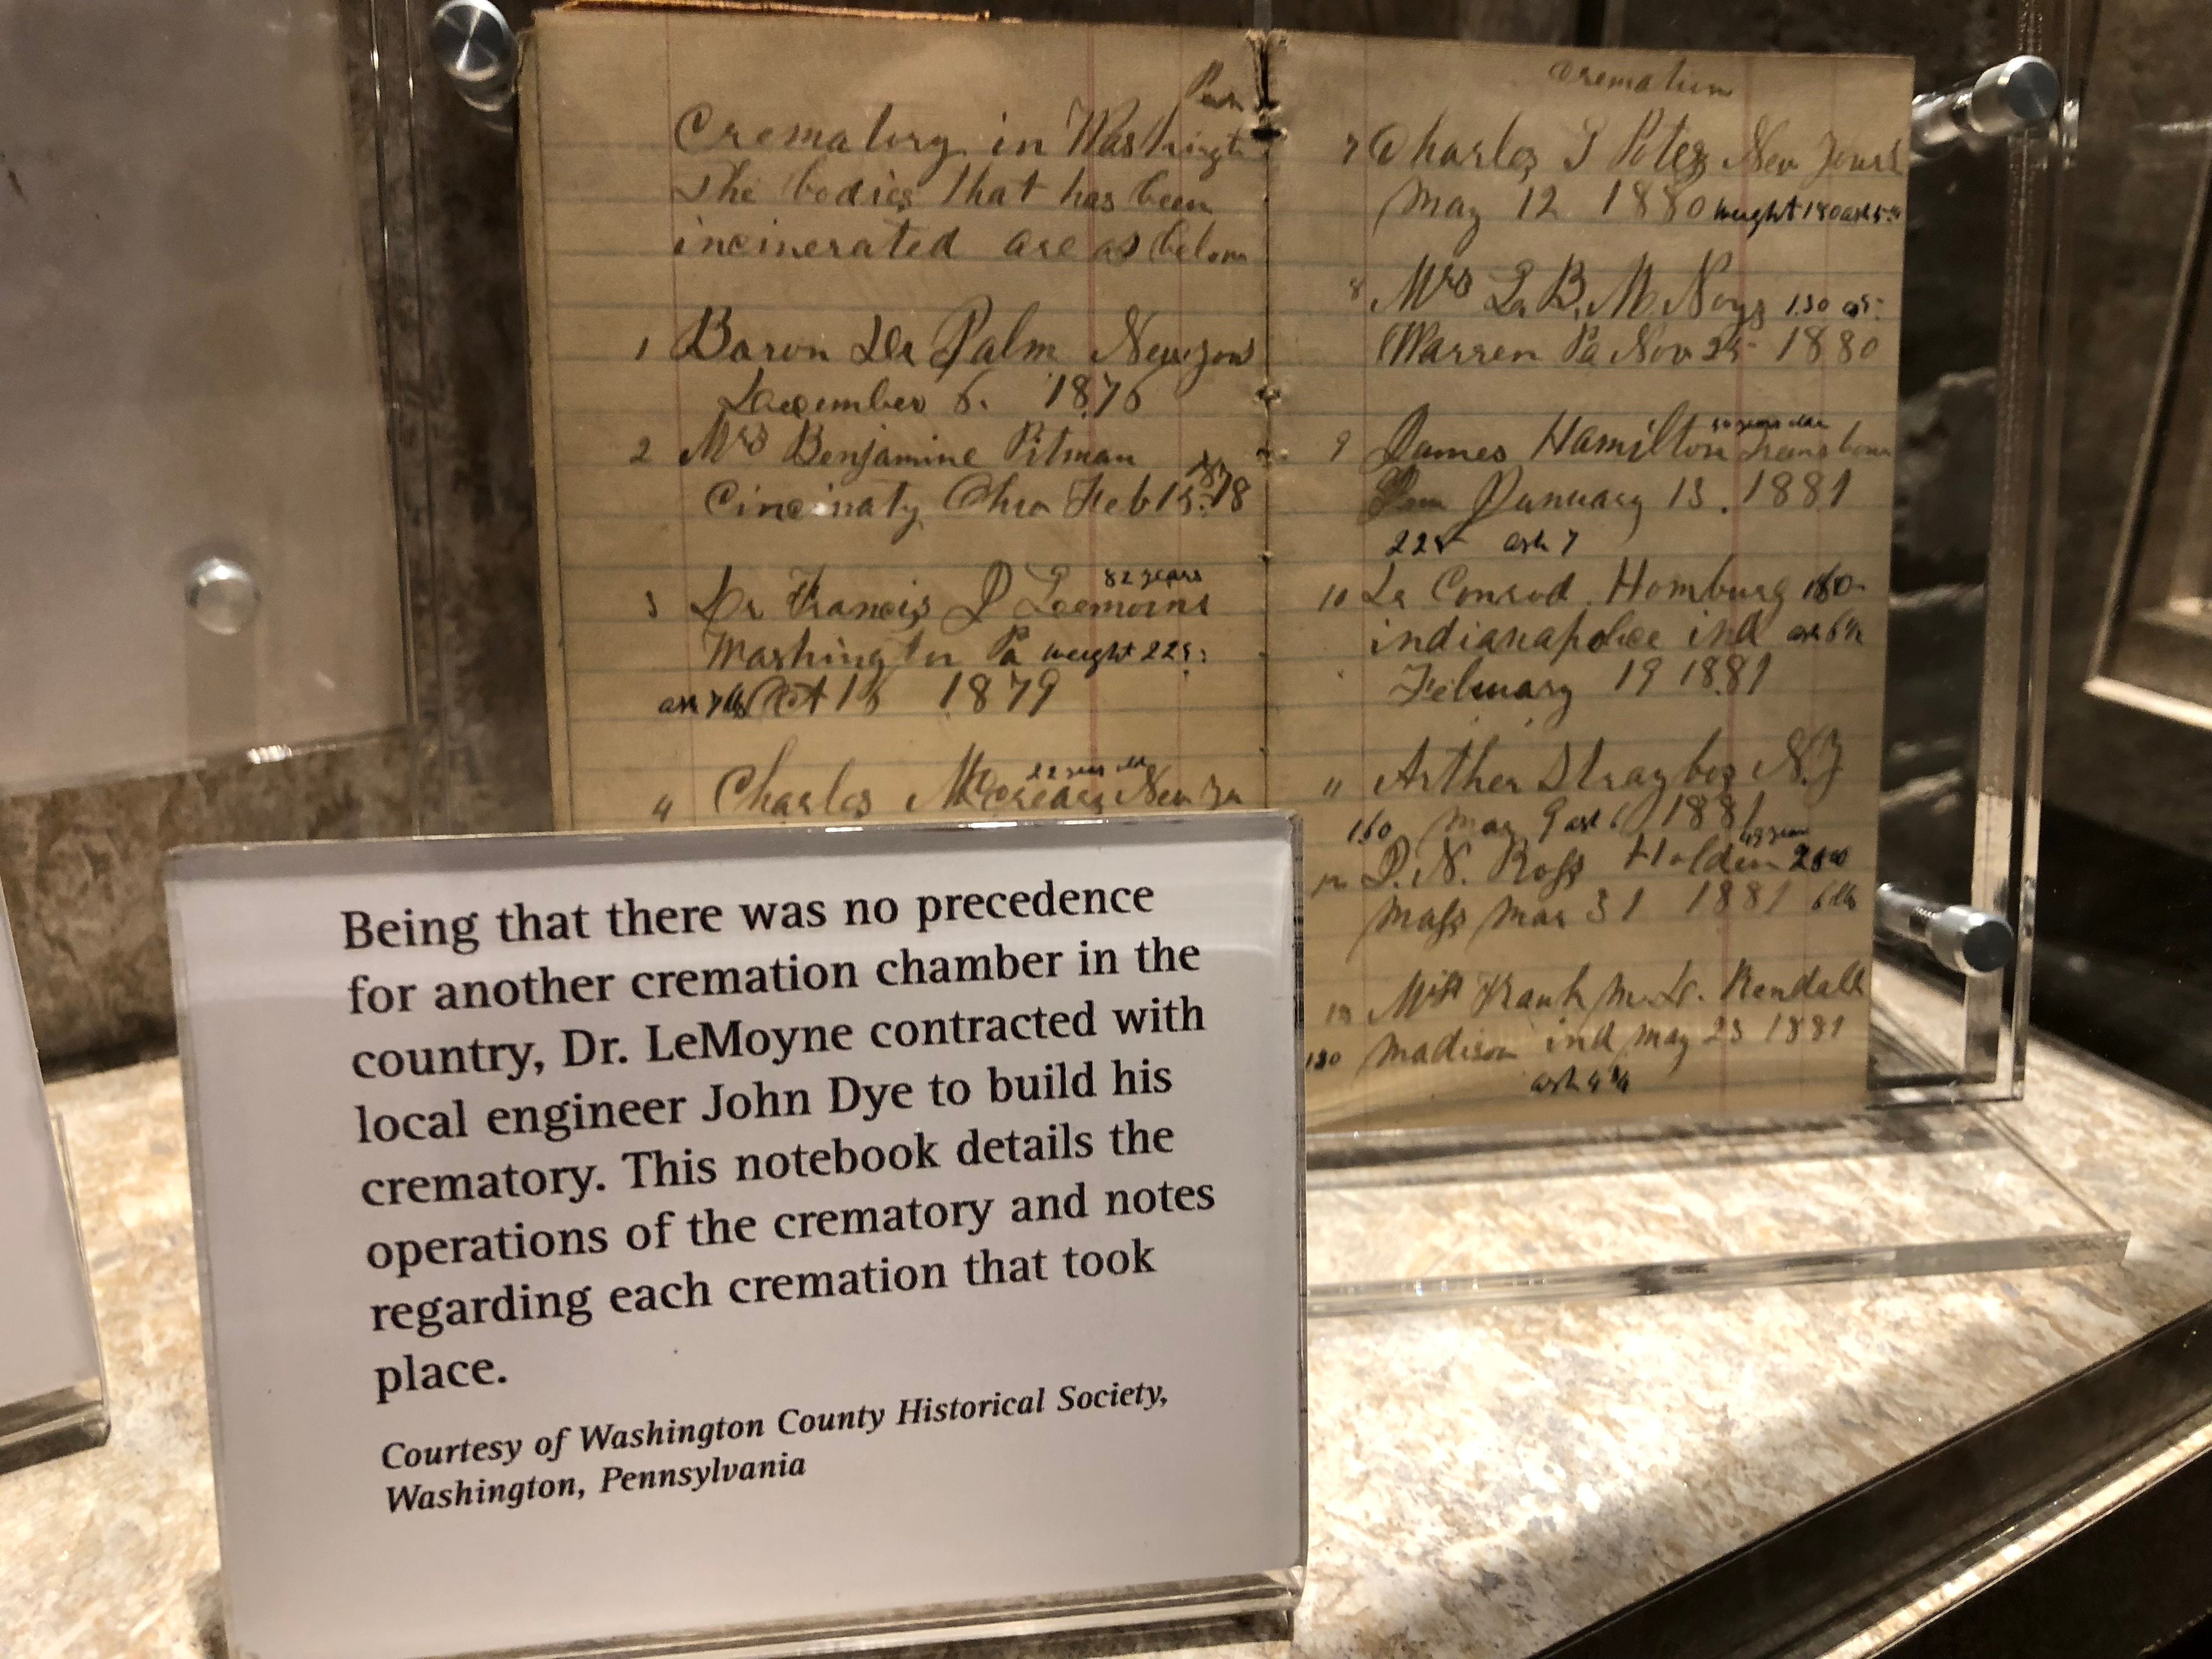 Crematory in Washington
The bodies that has been
incinerated are as below
1 Baron De Palm
December 6. 1876
2 Mrs Benjamine Pitman
Feb 15. 1878
82 years
3 Dr Francis J Leemoine
Washington Pa weight 225:
ash 7 lbs Oct 16 1879
22 years old
4 Charles
cremation
7 Charles
May 12 1880 weight 180 ash
8 Mrs L. B. M. Noys 130
Warren Pa Nov 25 1880
9 James Hamilton
January 13. 1881
225 ash 7
10 Conrod Homburg 160
ind ash
February 19 1881
11 Arther N.J
150 May 9 ash 6 1881
49 years
12 J. N. Ross Holden
Mass Mar 31 1881 6 lbs
13 Kendall
130 Madison ind May 23 1881
ash 4 3/4
Being that there was no precedence
for another cremation chamber in the
country, Dr. LeMoyne contracted with
local engineer John Dye to build his
crematory. This notebook details the
operations of the crematory and notes
regarding each cremation that took
place.
Courtesy of Washington County Historical Society,
Washington, Pennsylvania